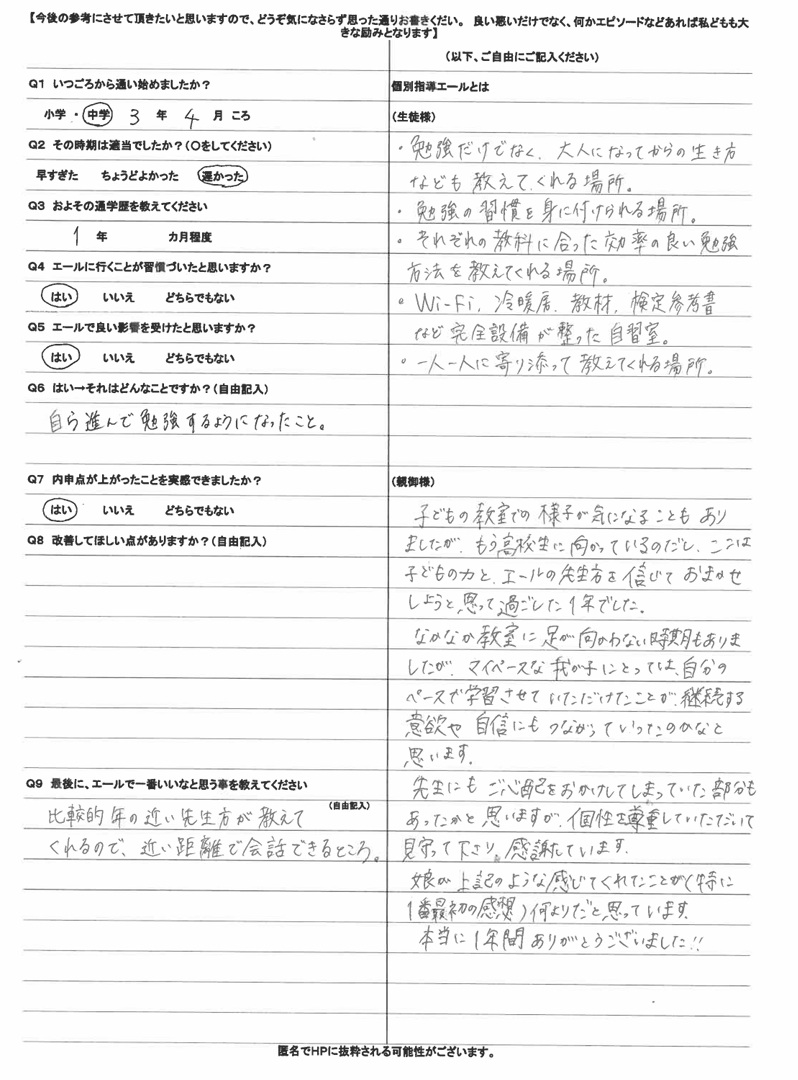 【今後の参考にさせて頂きたいと思いますので、どうぞ気になさらず思った通りお書きくだい。 良い悪いだけでなく、何かエピソードなどあれば私どもも大
きな励みとなります】
(以下、ご自由にご記入ください)
Q1 いつごろから通い始めましたか？
小学 ・ 中学 3 年 4 月 ころ
Q2 その時期は適当でしたか？(○をしてください)
早すぎた ちょうどよかった 遅かった
Q3 およその通学歴を教えてください
1 年 カ月程度
Q4 エールに行くことが習慣づいたと思いますか？
はい いいえ どちらでもない
Q5 エールで良い影響を受けたと思いますか？
はい いいえ どちらでもない
Q6 はい→それはどんなことですか？(自由記入)
自ら進んで勉強するようになったこと。
Q7 内申点が上がったことを実感できましたか？
はい いいえ どちらでもない
Q8 改善してほしい点がありますか？(自由記入)
Q9 最後に、エールで一番いいなと思う事を教えてください
(自由記入)
比較的年の近い先生方が教えて
くれるので、近い距離で会話できるところ。
個別指導エールとは
(生徒様)
・勉強だけでなく、大人になってからの生き方
なども教えてくれる場所。
・勉強の習慣を身に付けられる場所。
・それぞれの教科に合った効率の良い勉強
方法を教えてくれる場所。
・Wi-Fi, 冷暖房, 教材, 検定参考書
など完全設備が整った自習室。
・一人一人に寄り添って教えてくれる場所。
(親御様)
子どもの教室での様子が気になることもあり
ましたが、もう高校生に向かっているのだし、ここは
子どもの力と、エールの先生方を信じておまかせ
しようと思って過ごした1年でした。
なかなか教室に足が向かわない時期もありま
したが、マイペースな我が子にとっては、自分の
ペースで学習させていただけたことが、継続する
意欲や自信にもつながっていったのかなと
思います。
先生にもご心配をおかけしてしまっていた部分も
あったかと思いますが、個性を尊重していただいて
見守って下さり、感謝しています。
娘が上記のような感じてくれたことが(特に
1番最初の感想)何よりだと思っています。
本当に1年間ありがとうございました!!
匿名でHPに抜粋される可能性がございます。